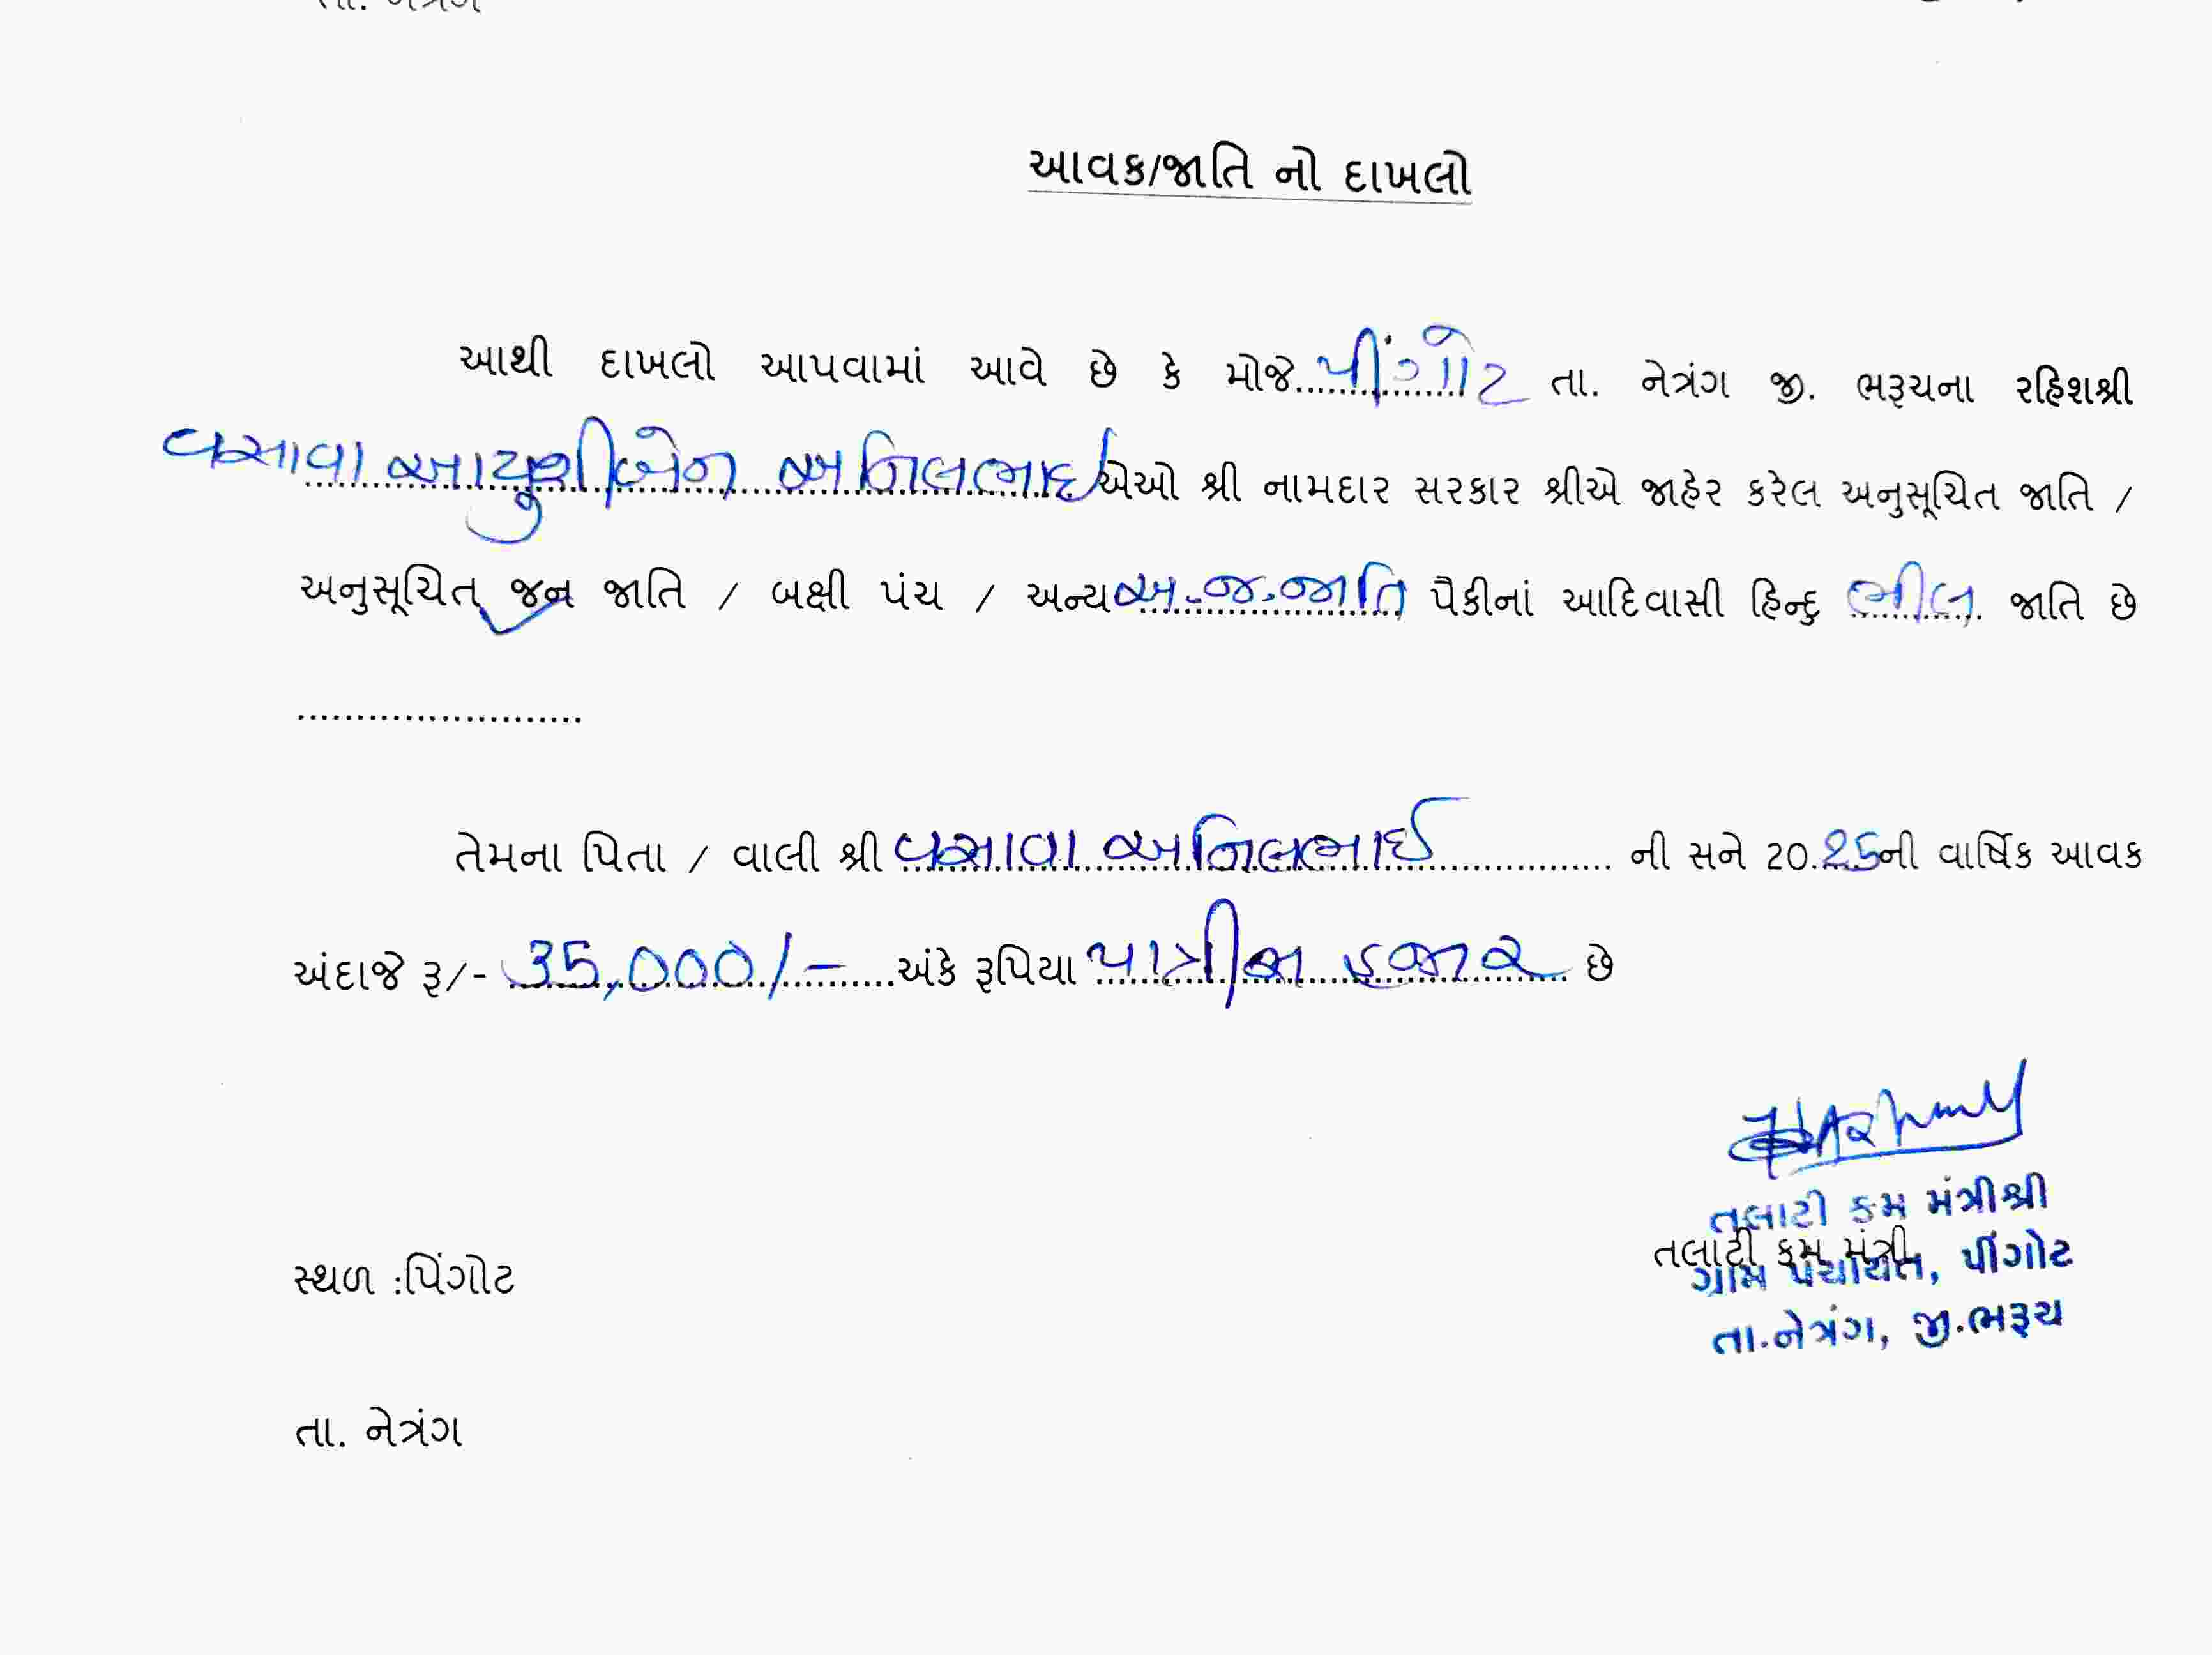 તા. નેત્રંગ
આવક/જાતિ નો દાખલો
આથી દાખલો આપવામાં આવે છે કે મોજે પીંગોટ તા. નેત્રંગ જી. ભરૂચના રહિશશ્રી
વસાવા આયુશીબેન અનિલભાઈ એઓ શ્રી નામદાર સરકાર શ્રીએ જાહેર કરેલ અનુસૂચિત જાતિ /
અનુસૂચિત જન જાતિ / બક્ષી પંચ / અન્ય અ.જ.જાતિ પૈકીનાં આદિવાસી હિન્દુ ભીલ જાતિ છે
........................
તેમના પિતા / વાલી શ્રી વસાવા અનિલભાઈ ની સને 20.25ની વાર્ષિક આવક
અંદાજે રૂ/- 35,000/- અંકે રૂપિયા પાત્રીસ હજાર છે
તલાટી કમ મંત્રીશ્રી
તલાટી કમ મંત્રી
ગ્રામ પંચાયત, પીંગોટ
તા.નેત્રંગ, જી.ભરૂચ
સ્થળ :પિંગોટ
તા. નેત્રંગ